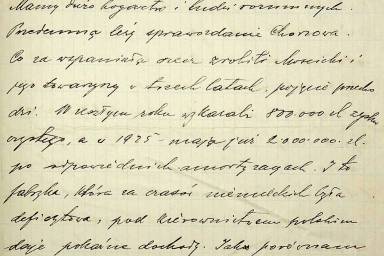 Mamy dużo bogactw i ludzi rozumnych.
Przedemną leży sprawozdanie Chorzowa.
Co za wspaniałą rzecz zrobili Mościcki i
jego towarzysze w trzech latach, pojęcie przecho
dzi. W zeszłym roku wykazali 800.000 zł zysku
czystego, a w 1925 mają już 2 000.000 zł.
po odpowiednich amortyzacjach. I ta
fabryka, która za czasów niemieckich była
deficytową, pod kierownictwem polskim
daje pokaźne dochody. Jako porównam